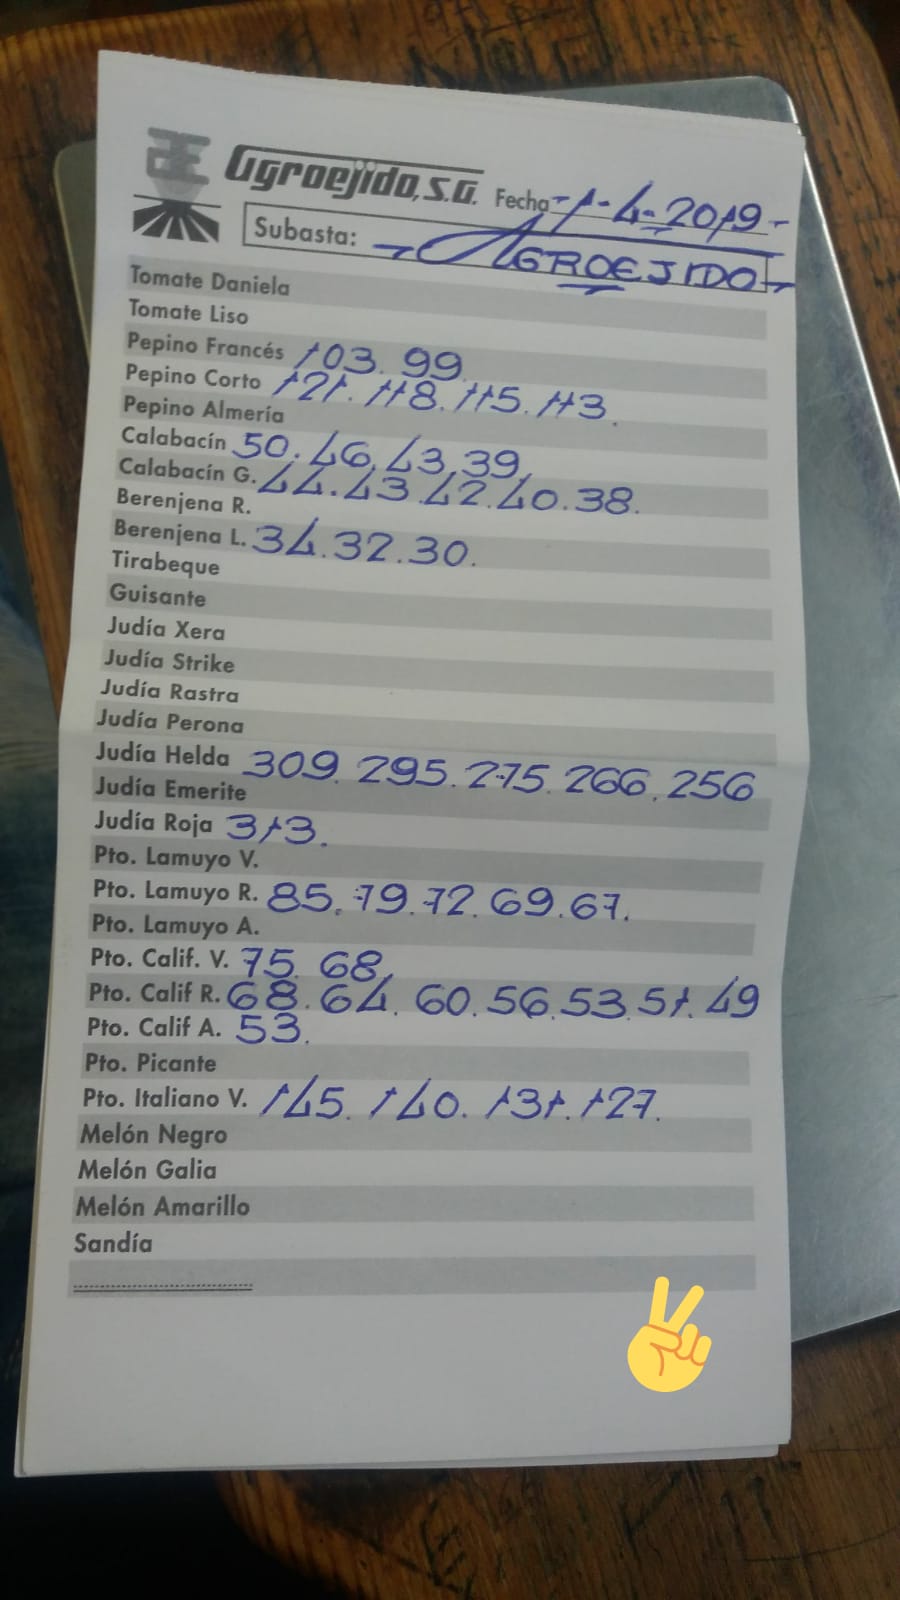 Agroejido, S.A. Fecha -1-4-2019-
Subasta: -AGROEJIDO-
Tomate Daniela
Tomate Liso
Pepino Francés 103. 99.
Pepino Corto 121. 118. 115. 113.
Pepino Almería
Calabacín 50. 46. 43. 39.
Calabacín G. 44. 43. 42. 40. 38.
Berenjena R.
Berenjena L. 34. 32. 30.
Tirabeque
Guisante
Judía Xera
Judía Strike
Judía Rastra
Judía Perona
Judía Helda 309. 295. 275. 266. 256
Judía Emerite
Judía Roja 313.
Pto. Lamuyo V.
Pto. Lamuyo R. 85. 79. 72. 69. 67.
Pto. Lamuyo A.
Pto. Calif. V. 75. 68.
Pto. Calif R. 68. 64. 60. 56. 53. 51. 49
Pto. Calif A. 53.
Pto. Picante
Pto. Italiano V. 145. 140. 131. 127.
Melón Negro
Melón Galia
Melón Amarillo
Sandía